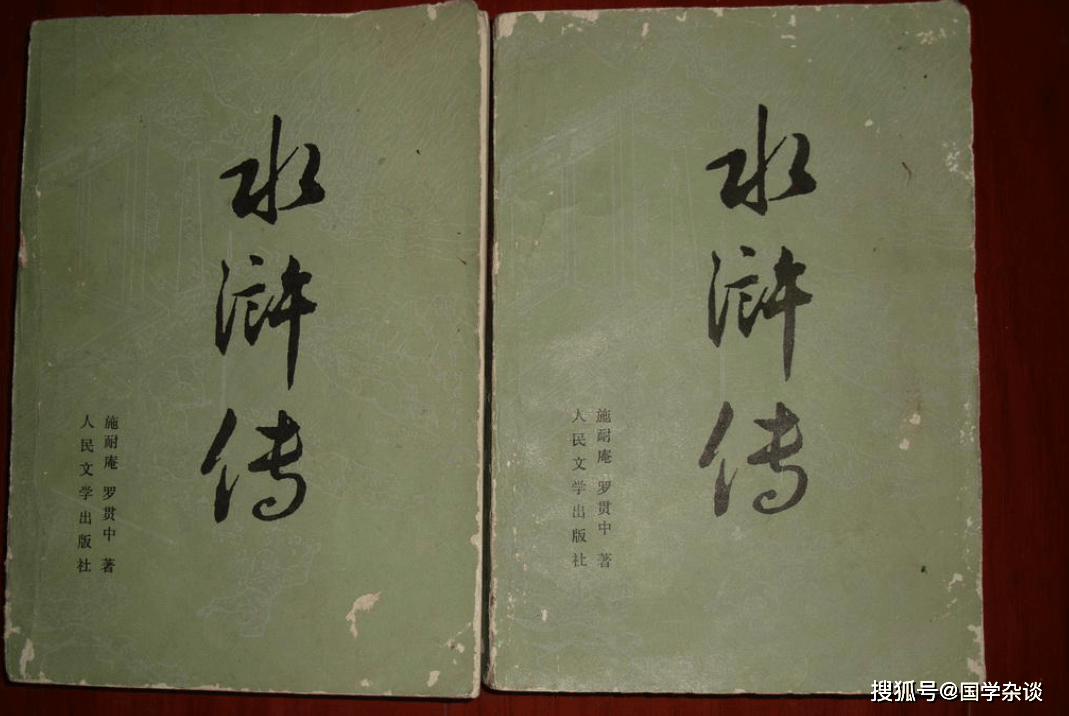 水浒传
施耐庵 罗贯中 著
人民文学出版社
水浒传
施耐庵 罗贯中 著
人民文学出版社
搜狐号@国学杂谈